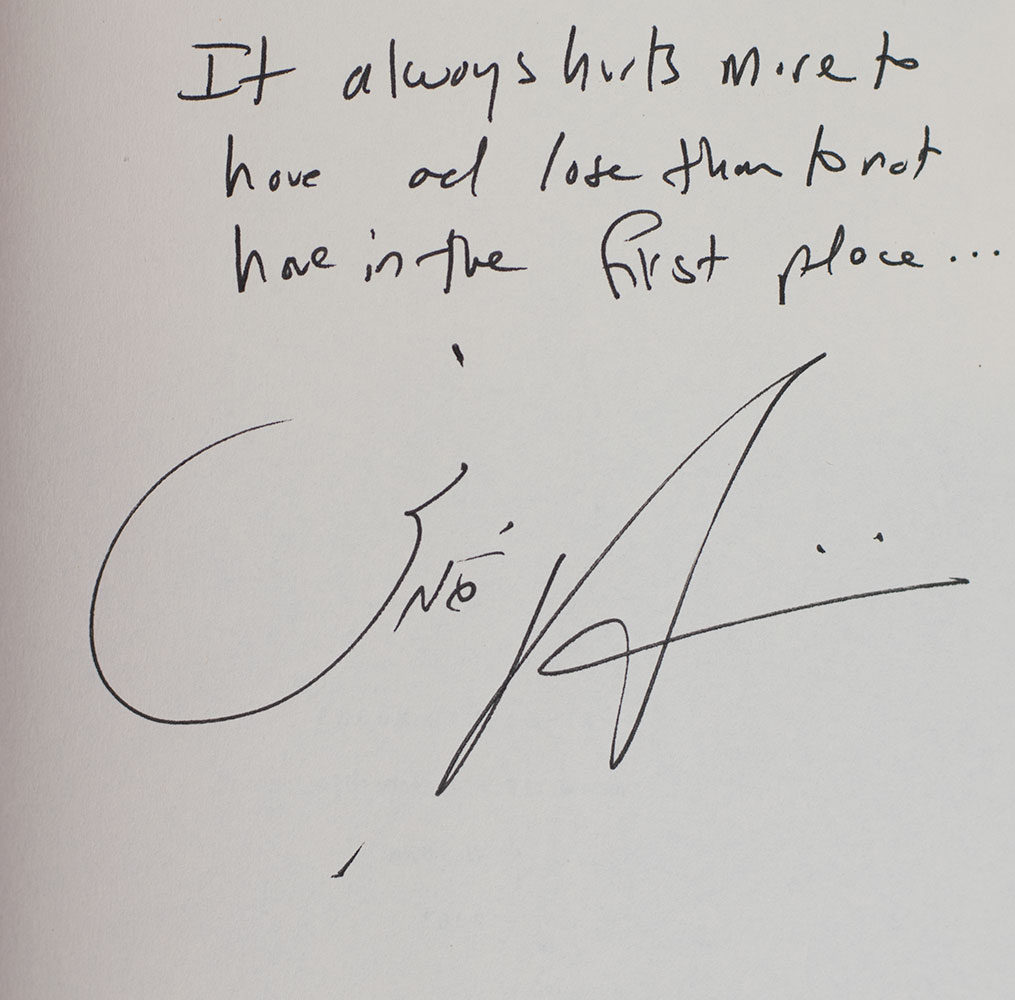 It always hurts more to
have and lose than to not
have in the first place...